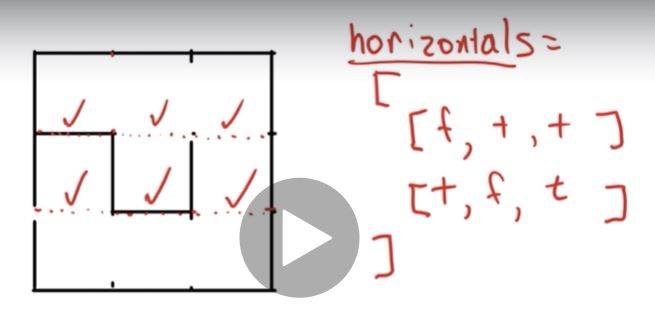 horizontals=
[
[f, t, t]
[t, f, t]
]